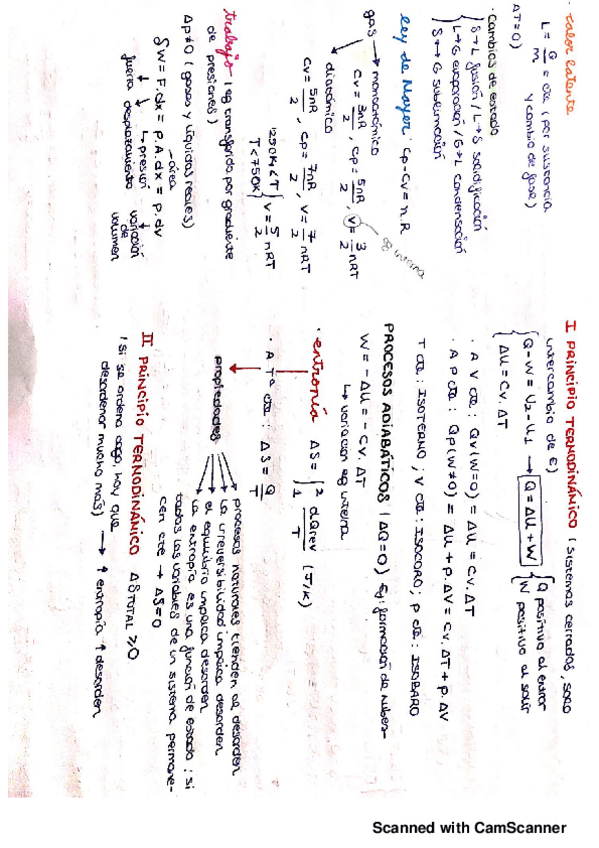 · calor latente
L = Q/m = cte (por sustancia y cambio de fase)
ΔT=0)
· Cambios de estado
S→L fusión / L→S solidificación
L→G evaporación / G→L condensación
S→G sublimación
ley de Mayer: Cp-Cv=nR
gas → monoatómico
Cv = 3nR/2, Cp = 5nR/2, U = 3/2 nRT
eg interna
diatómico
Cv = 5nR/2, Cp = 7nR/2, U = 7/2 nRT
1250K<T
T<750K } U = 5/2 nRT
trabajo (eg transferida por gradiente
de presiones)
Δp≠0 (gases y líquidos reales)
δW = F.dx = p.A.dx = p.dv
área
fuerza desplazamiento presión variación
de
volumen
I PRINCIPIO TERMODINÁMICO (sistemas cerrados, solo
intercambio de E)
Q-W = U2-U1 → Q = ΔU+W { Q positivo al entrar
W positivo al salir
ΔU = Cv.ΔT
· A V cte: Qv(W=0) = ΔU = Cv.ΔT
· A p cte: Qp(W≠0) = ΔU + p.ΔV = Cv.ΔT + p.ΔV
T cte: ISOTERMO; V cte: ISOCORO; p cte: ISOBARO
PROCESOS ADIABÁTICOS (ΔQ=0) Ej: formación de nubes-
W = -ΔU = -Cv.ΔT
↳ variación eg interna
· entropía ΔS = ∫₁² dQrev/T (J/K)
· A Tª cte: ΔS = Q/T
propiedades
procesos naturales tienden al desorden
la irreversibilidad implica desorden
el equilibrio implica desorden
la entropía es una función de estado: si
todas las variables de un sistema permane-
cen cte → ΔS=0
II PRINCIPIO TERMODINÁMICO ΔSTOTAL ≥0
(si se ordena algo, hay que
desordenar mucho más) → ↑ entropía ↑ desorden
Scanned with CamScanner